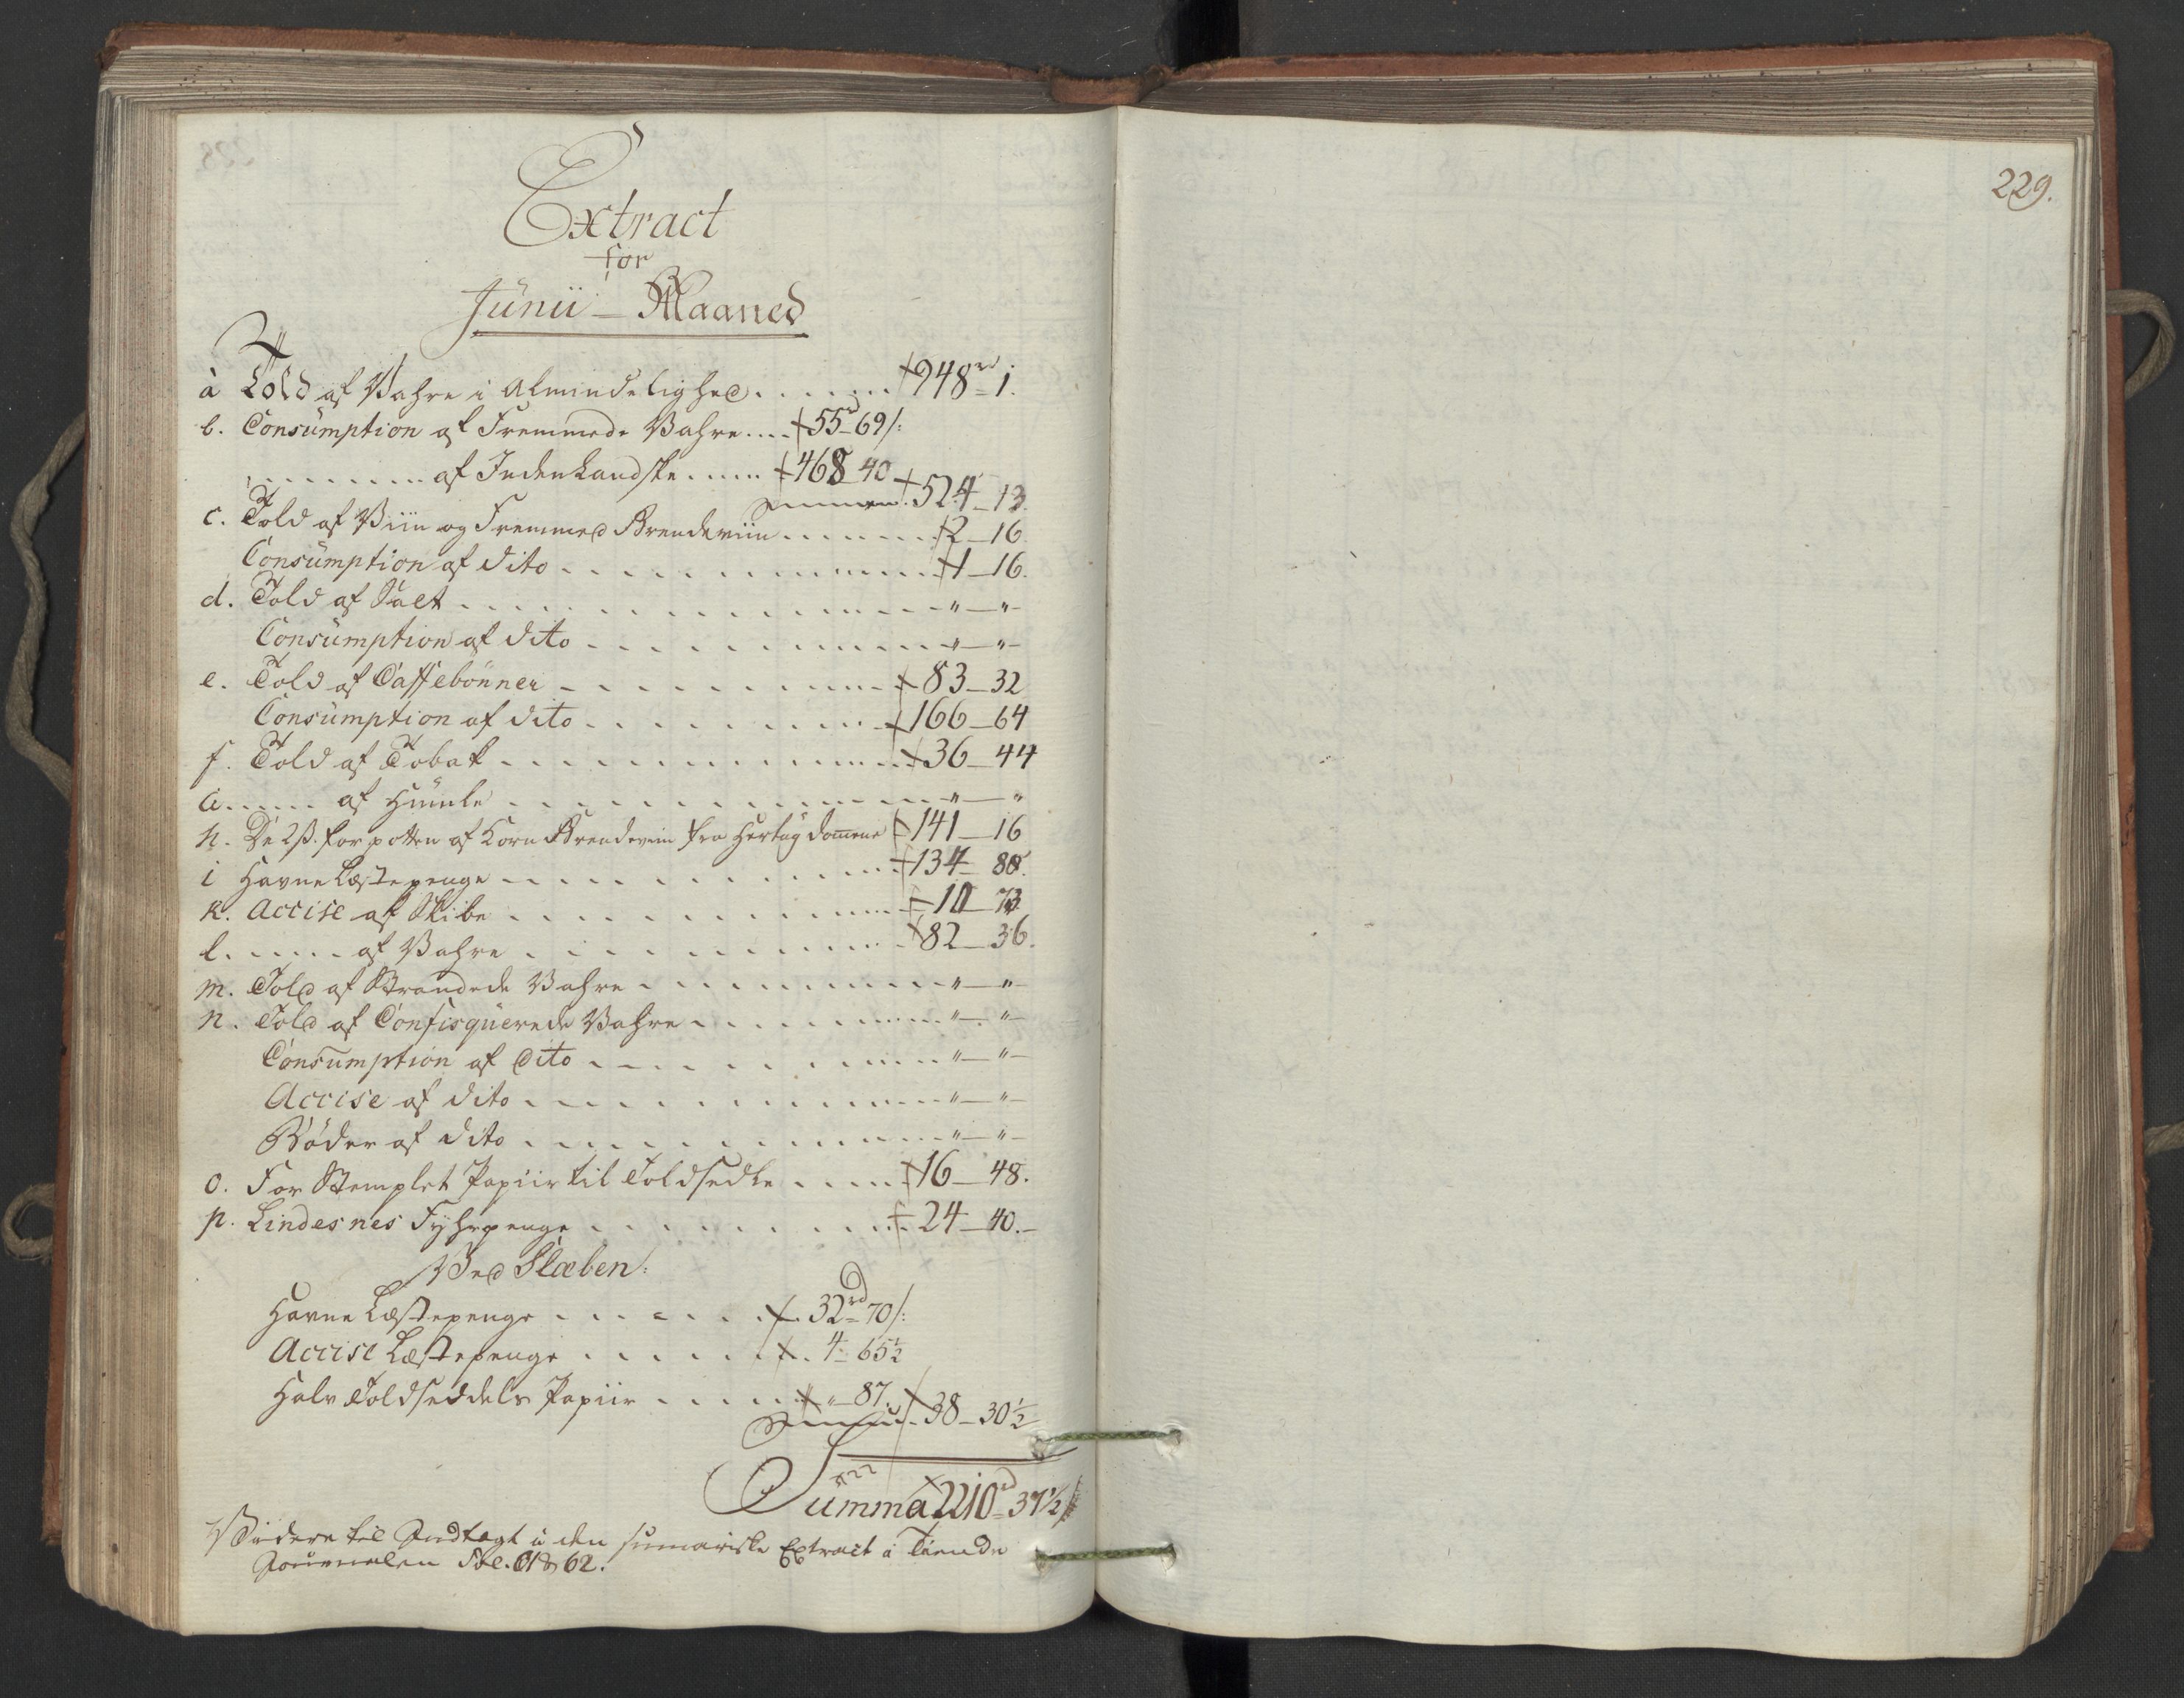 Extract
for
Junii Maaned
a Told af Vahre i Almindelighed . . . . . . . 948 rd 1.
b. Consumption af Fremmede Vahre .... 55 rd 69 /:
. . . . . . . . . af Indenlandske ..... 468 40
524 13.
c. Told af Viin og Fremmed Brendeviin . . . . . . . 2 16
Consumption af dito . . . . . . . . . . . . 1 16.
d. Told af Salt . . . . . . . . . . . . " "
Consumption af dito . . . . . . . . . . . . " "
e. Told af Caffebönner . . . . . . . . . . 83 32
Consumption af dito . . . . . . . . . . 166 64
f. Told af Tobak . . . . . . . . . . . . 36 44
G. . . . . . af Humle . . . . . . . . . . . . " "
h. De 2 ß. for potten af Korn Brendeviin fra Hertugdomene 141 16
i Havne Læstepenge . . . . . . . . . . . . 134 88.
k. Accise af Skibe . . . . . . . . . . . . 10 73
l. . . . . . af Vahre . . . . . . . . . . . . 82 36.
m. Told af Strandede Vahre . . . . . . . . . . " "
n. Told af Confisquerede Vahre . . . . . . . . " "
Consumption af dito . . . . . . . . . . " "
Accise af dito . . . . . . . . . . . . " "
Böder af dito . . . . . . . . . . . . " "
o. For Stemplet Papiir til Toldsedle . . . . . 16 48.
p. Lindesnes Fyhrpenge . . . . . . . . . . 24 40.
Ved Slæben:
Havne Læstepenge . . . . . . . 32 rd 70 /:
Accise Læstepenge . . . . . . . 4 65 1/2
Halv Toldseddels Papiir . . . . . " 87.
38 30 1/2
Summa 2210 rd 37 1/2 /
Videre til Indtægt i den sumariske Extract i Tiende
Journalen Fol. 61 & 62.
229.